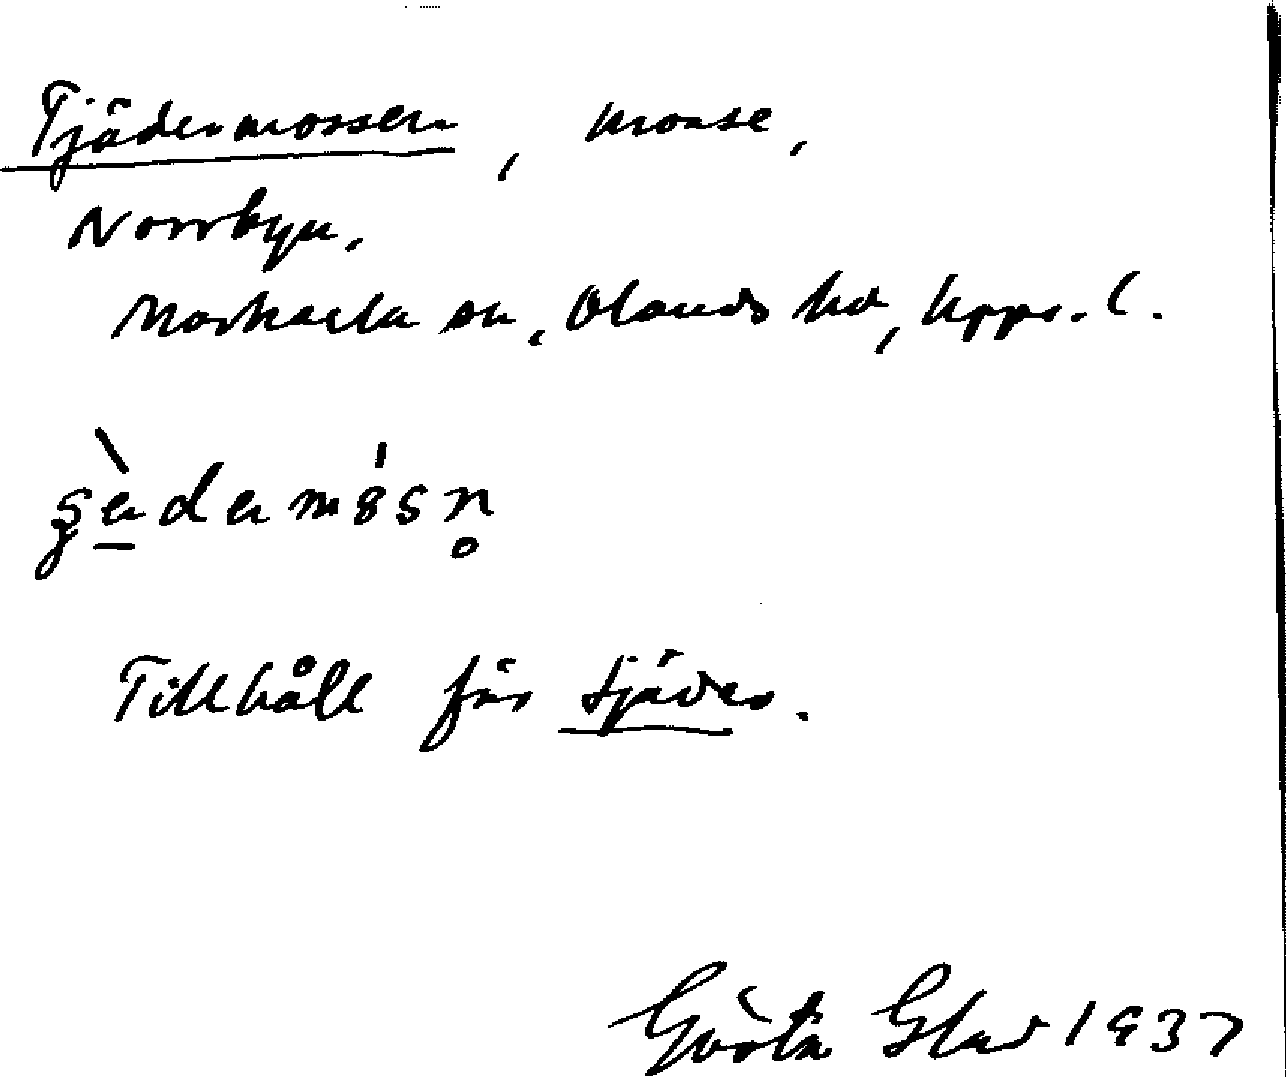 Tjädermossen, mosse,
Norrbyn.
Morkarla sn, Olands hd, Upps. l.
Tillhåll för tjäder.
Gösta 1937